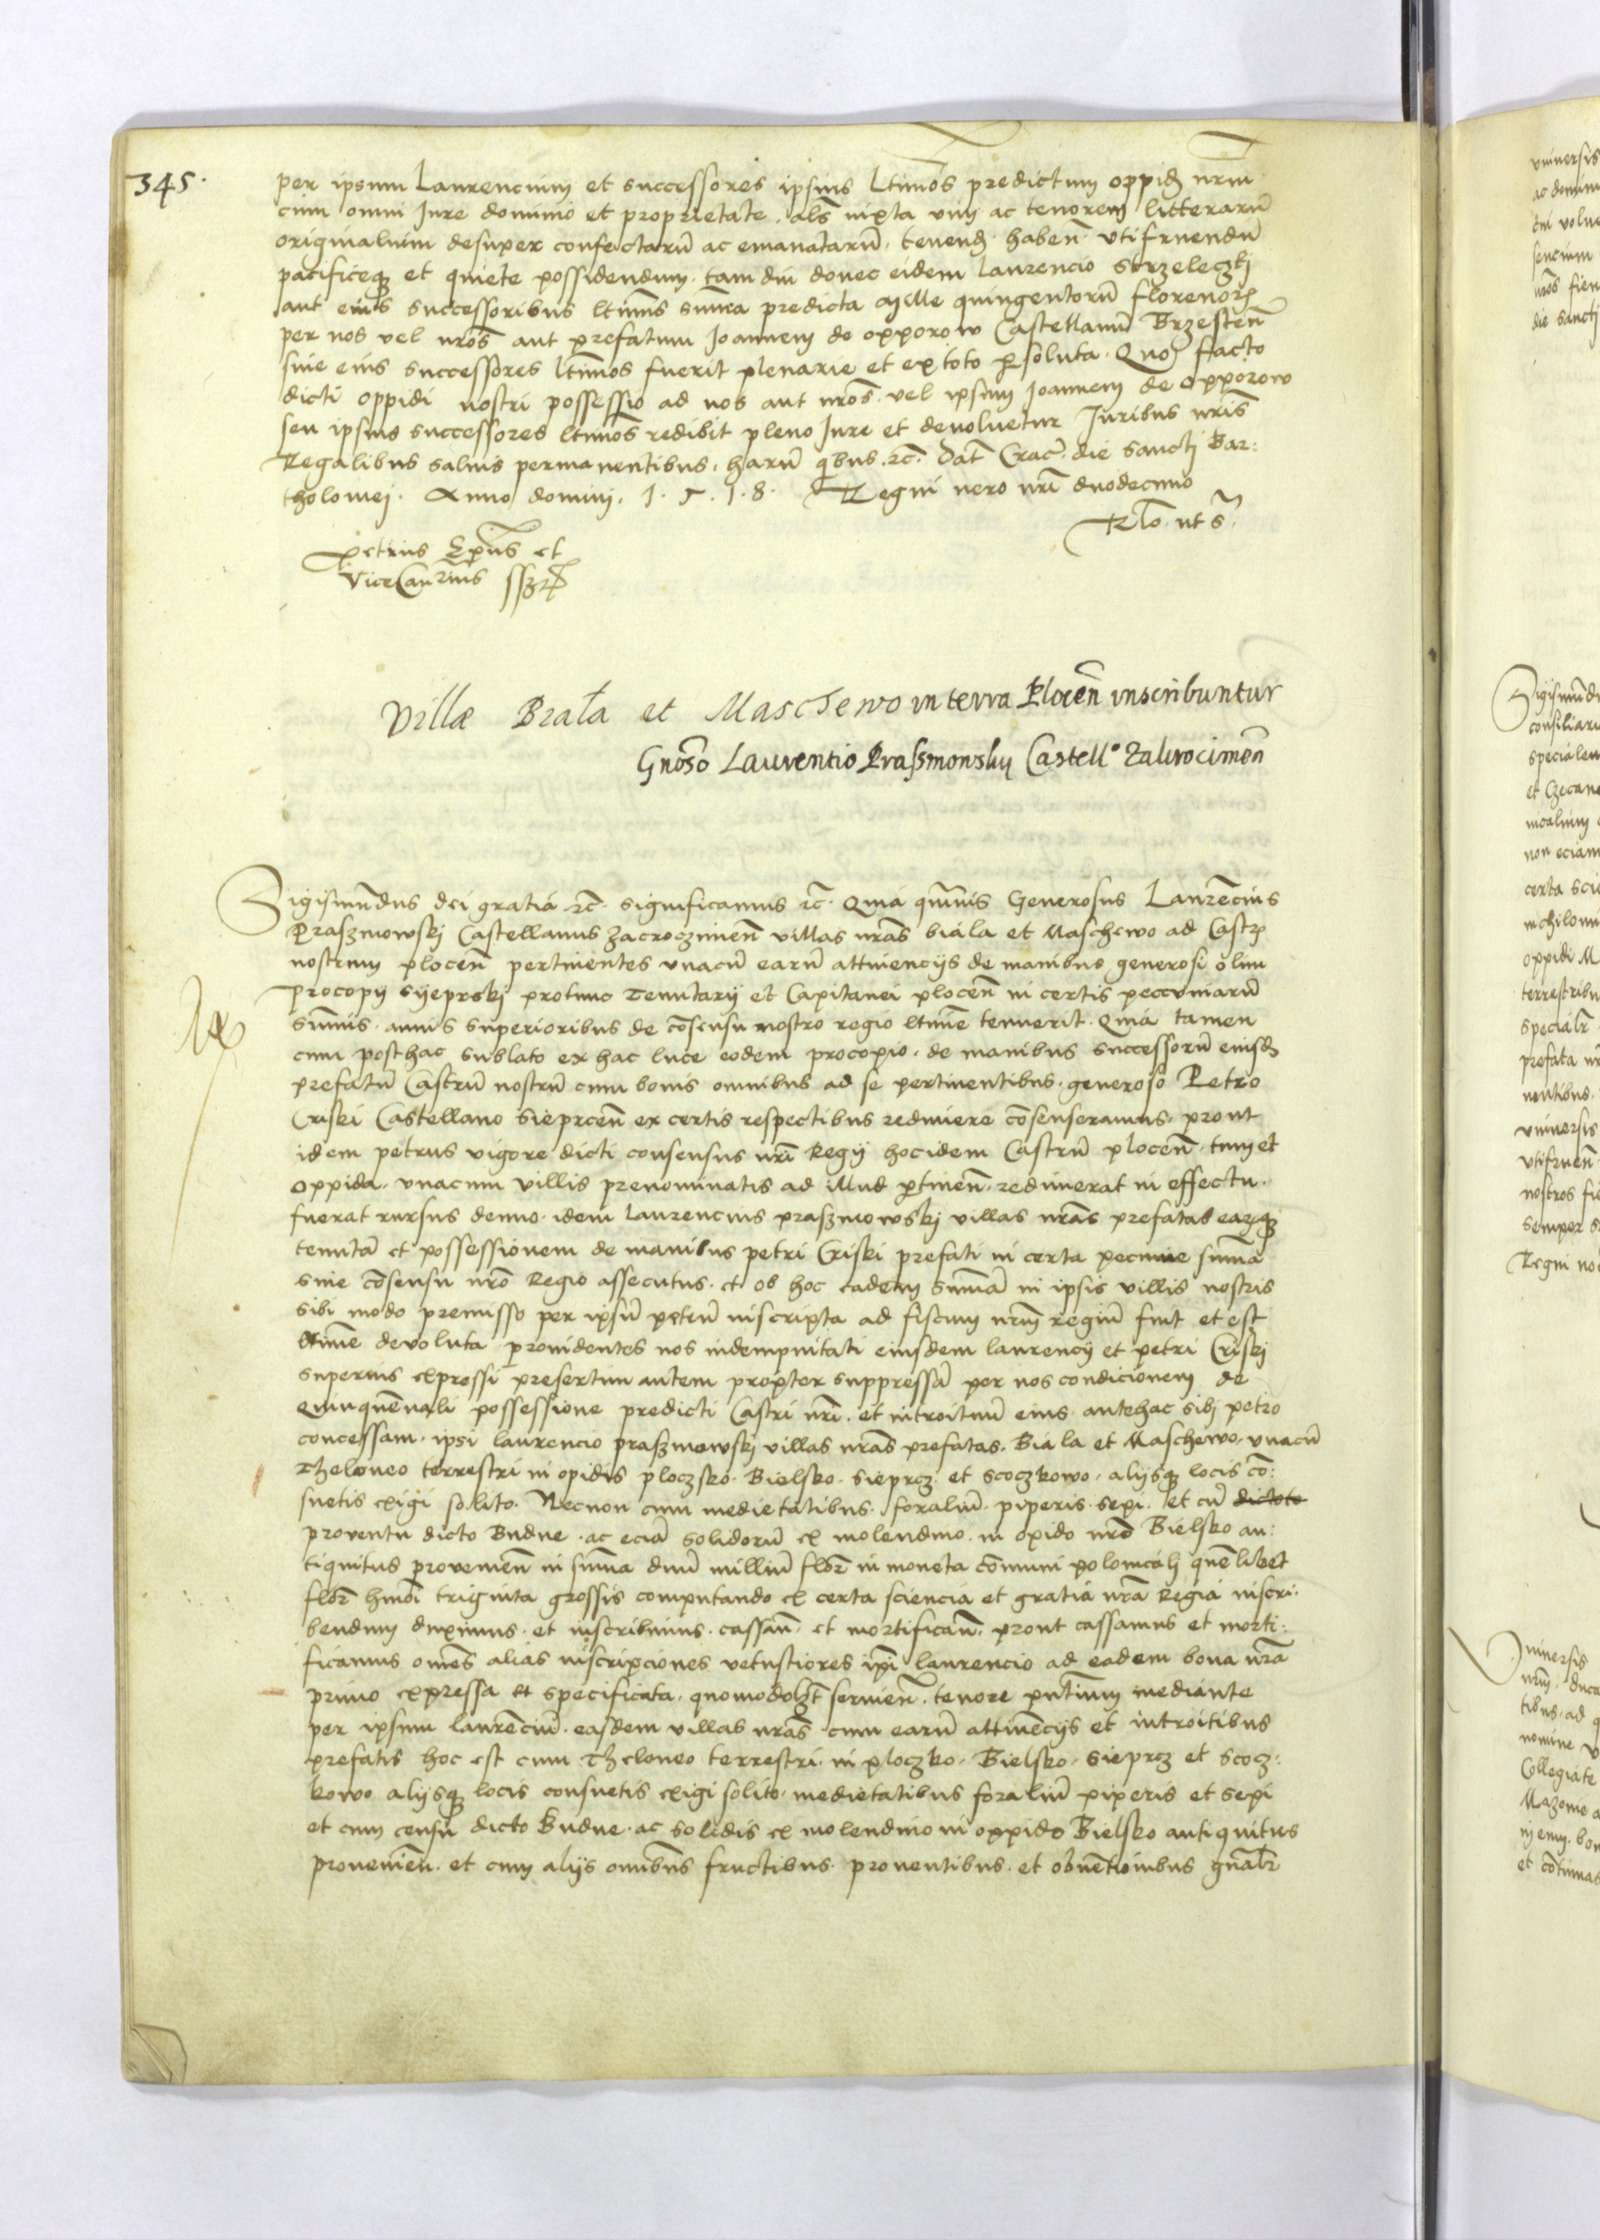 345.
per ipsum Laurencium et successores ipsius Ltimos predictum oppidu nrm
cum omni Jure dominio et proprietate. als iuxta vim ac tenorem litterarū
originalium desuper confectarū ac emanatarū. tenend haben utifruendū
pacificeqz et quiete possidendum. tam diu donec eidem Laurencio Strzeleczkj
aut eius successoribus Ltimis summa predicta Mille quingentorū florenorz
per nos vel nros aut prefatum Joannem de opporow Castellanū Brzesten
siue eius successores Ltimos fuerit plenarie et ex toto psoluta. Quo facto
dicti oppidi nostri possessio ad nos aut nros. vel ipsum Joannem de opporow
seu ipsius successores ltimos redibit pleno Jure et devoluetur Juribus nris
Regalibus saluis permanentibus. harū qbus. rc. Dat Crac. die sancti Bar:
tholomei. Anno domini. 1. 5. 1. 8. Regni vero nri duodecimo
Rlo. ut s.
Petrus Epus et
ViceCanrius sszt
Villæ Biała et Maschewo in terra Plocen inscribuntur
Gnoso Laurentio Prassmonsky Castello Zakrocimen
Sigismundus dei gratia rc. significamus rc. Quia quis Generosus Laurencius
Praszmowskj Castellanus Zacroczimen villas nras biala et Maschewo ad Castrz
nostrum plocen pertinentes vnacū earū attinencijs de manibus generosi olim
procopij syeprskj protunc Tenutarij et Capitanei plocen in certis peccuniarū
sumis. annis superioribus de cosensu nostro regio ltime tenuerit. Quia tamen
cum posthac sublato ex hac luce eodem procopio. de manibus successorū eiusd
prefatū Castrū nostrū cum bonis omnibus ad se pertinentibus. generoso Petro
Criski Castellano Sieprcen ex certis respectibus redimere cosenseramus. prout
idem petrus vigore dicti consensus nri Regij hocidem Castrū plocen. tum et
oppida. vnacum villis prenominatis ad illud ptinen. redimerat in effectu.
fuerat rursus denuo. idem laurencius praszmowskj villas nras prefatas earqz
tenuta et possessionem de manibus petri Criski prefati in certa pecunie suma
sine cosensu nro Regio assecutus. et ob hoc eadem suma in ipsis villis nostris
sibi modo premisso per ipsū petrū inscripta ad fiscum nrm regiū fuit et est
ltime devoluta prouidentes nos indempnitati eiusdem laurencij et petri Criskj
superius expressi presertim autem propter suppressa per nos condicionem de
Quinquenali possessione predicti Castri nri. et introituū eius. antehac sibj petro
concessam. ipsi laurencio praszmowskj villas nras prefatas. Biala et Maschewo. vnacū
Theloneo terrestri in opidis ploczko. Bielsko. sieprcz et scoczkowo. alijsqz locis co:
suetis exigi solito. Necnon cum medietatibus. foraliū. piperis. sepi. et cū dictoto
proventu dicto Budne. ac ecia solidorū ex molendino. in opido nro Bielsko an:
tiquitus provenien in suma duū milliū flor in moneta comuni polonicali quelibet
flor hmoi triginta grossis computando ex certa sciencia et gratia nra Regia inscri:
bendum duximus. et inscribimus. cassan. et mortifican. prout cassamus et morti:
ficamus omes alias inscripciones vetustiores ipi laurencio ad eadem bona nra
primo expressa et specificata. quomodolzt seruien. tenore pntium mediante
per ipsum laurenciū. easdem villas nras cum earū attinecijs et introitibus
prefatis hoc est cum Theloneo terrestri in ploczko. Bielsko. sieprcz et scocz:
kowo alijsqz locis consuetis exigi solito. medietatibus foraliū piperis et sepi
et cum censu dicto Budne. ac solidis ex molendino in oppido Bielsko antiquitus
provenien. et cum alijs omibus fructibus. proventibus. et obuetionibus gnalr